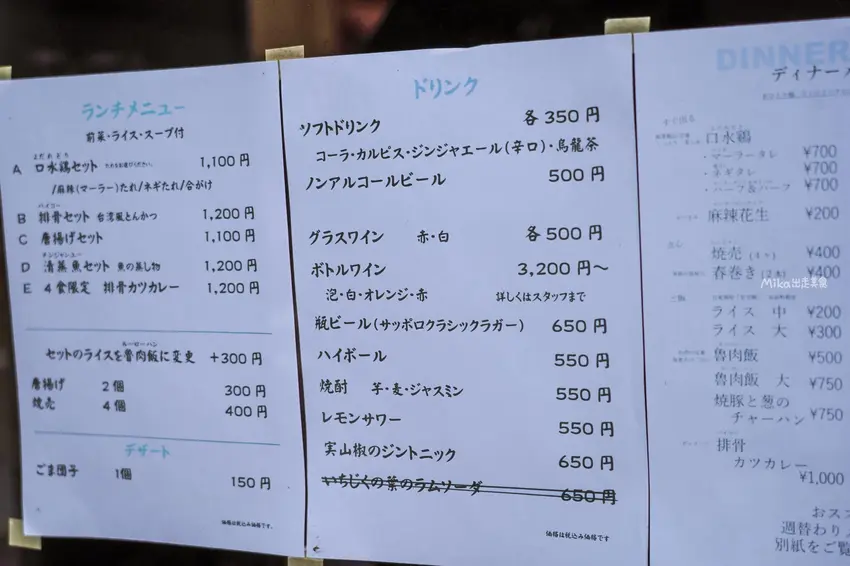 ランチメニュー
前菜・ライス・スープ付
よだれどり
A 口水鶏セット たれをお選びください。 1,100 円
/麻辣(マーラー)たれ/ネギたれ/合がけ
パイコー
B 排骨セット 台湾風とんかつ 1,200 円
C 唐揚げセット 1,100 円
チンジャンユー
D 清蒸魚セット 魚の蒸し物 1,200 円
E 4食限定 排骨カツカレー 1,200 円
ルーローハン
セットのライスを魯肉飯に変更 +300 円
唐揚げ 2個 300 円
焼売 4個 400 円
デザート
ごま団子 1個 150 円
価格は税込み価格です。
ドリンク
ソフトドリンク 各 350 円
コーラ・カルピス・ジンジャエール(辛口)・烏龍茶
ノンアルコールビール 500 円
グラスワイン 赤・白 各 500 円
ボトルワイン 3,200 円〜
泡・白・オレンジ・赤 詳しくはスタッフまで
瓶ビール(サッポロクラシックラガー) 650 円
ハイボール 550 円
焼酎 芋・麦・ジャスミン 550 円
レモンサワー 550 円
実山椒のジントニック 650 円
いちじくの葉のラムソーダ 650 円
価格は税込み価格です
DINNER
ディナー
すぐ出る
口水鶏
・マーラータレ ¥700
・ネギタレ ¥700
・ハーフ&ハーフ ¥700
麻辣花生 ¥200
焼売 (4ヶ) ¥400
春巻き (2本) ¥400
Mika出走美食
ライス 中 ¥200
ライス 大 ¥300
魯肉飯 ¥500
魯肉飯 大 ¥750
焼豚と葱の
チャーハン ¥750
排骨
カツカレー
¥1,000
おスス
週替わり
別紙をご覧